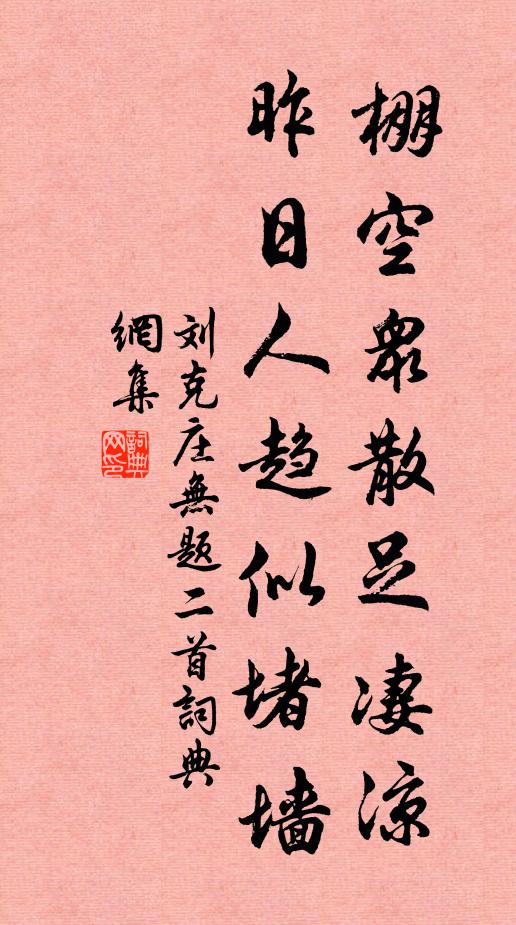 棚空衆散足凄凉
昨日人趋似堵墙
刘克庄無题二首詞典
網集
詞典网印